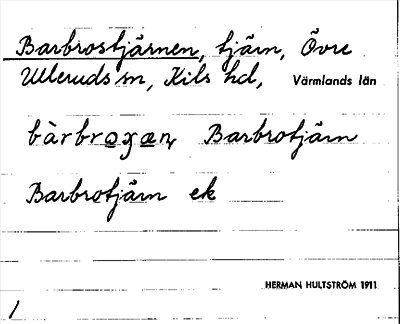 Barbrostjärnen, tjärn, Övre
Ulleruds sn, Kils hd, Värmlands län
Barbrotjärn
Barbrotjärn ek
HERMAN HULTSTRÖM 1911
1